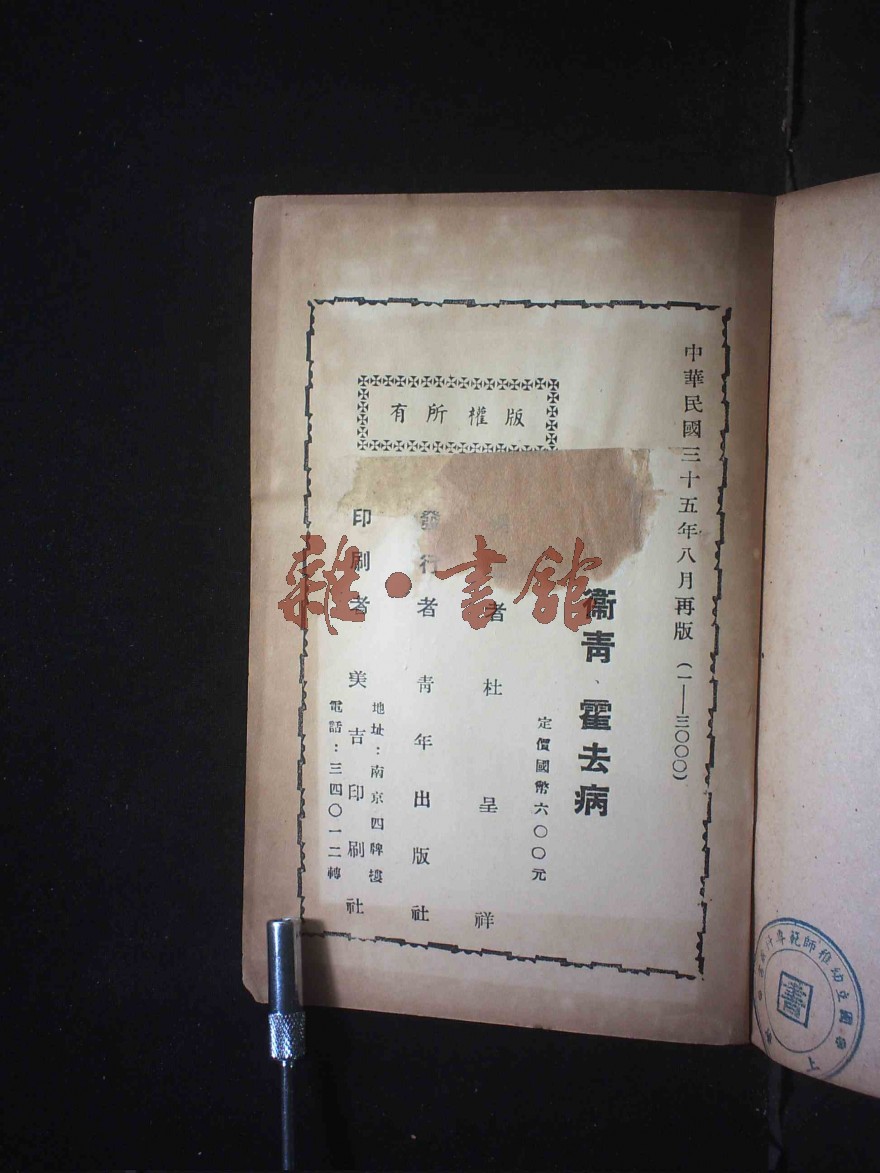 中華民國三十五年八月再版（一——三〇〇〇）
衞青、霍去病
定價國幣六〇〇元
者 杜呈祥
發行者 青年出版社
印刷者 美吉印刷社
地址：南京四牌樓
電話：三四〇一二轉
版權所有
雜·書館
國立幼稚師範專
書
上